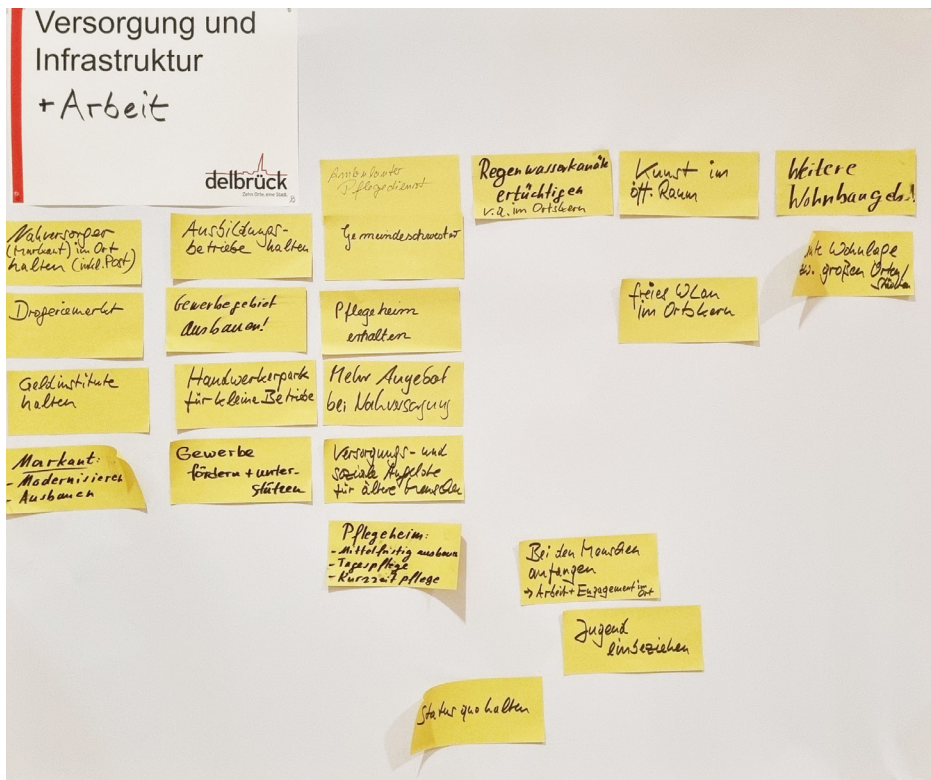 Versorgung und
Infrastruktur
+ Arbeit
delbrück
Zehn Orte, eine Stadt.
Nahversorger
(Markant) im Ort
halten (inkl. Post)
Drogeriemarkt
Geldinstitute
halten
Markant:
- Modernisieren
- Ausbauen
Ausbildungs-
betriebe halten
Gewerbegebiet
ausbauen!
Handwerkerpark
für kleine Betriebe
Gewerbe
fördern + unter-
stützen
Ambulanter
Pflegedienst
Gemeindeschwester
Pflegeheim
erhalten
Mehr Angebot
bei Nahversorgung
Versorgungs- und
soziale Angebote
für ältere Menschen
Pflegeheim:
- Mittelfristig ausbauen
- Tagespflege
- Kurzzeitpflege
Regenwasserkanäle
ertüchtigen
v.a. im Ortskern
Kunst im
öff. Raum
freies WLan
im Ortskern
Weitere
Wohnbaugeb.!
Wohnlage
zw. großen Orten/
Städten
Bei den Menschen
anfangen
→ Arbeit + Engagement im
Ort
Jugend
einbeziehen
Status quo halten